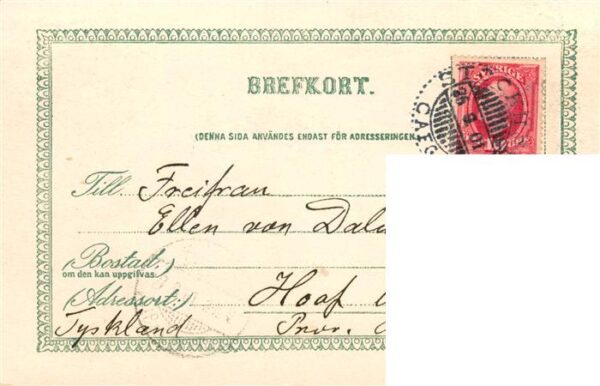 BREFKORT.
(DENNA SIDA ANVÄNDES ENDAST FÖR ADRESSERINGEN
SVERIGE
Till Freifrau
Ellen von
(Bostad:)
om den kan uppgifvas.
(Adressort:) Hoof
Tyskland Prov.